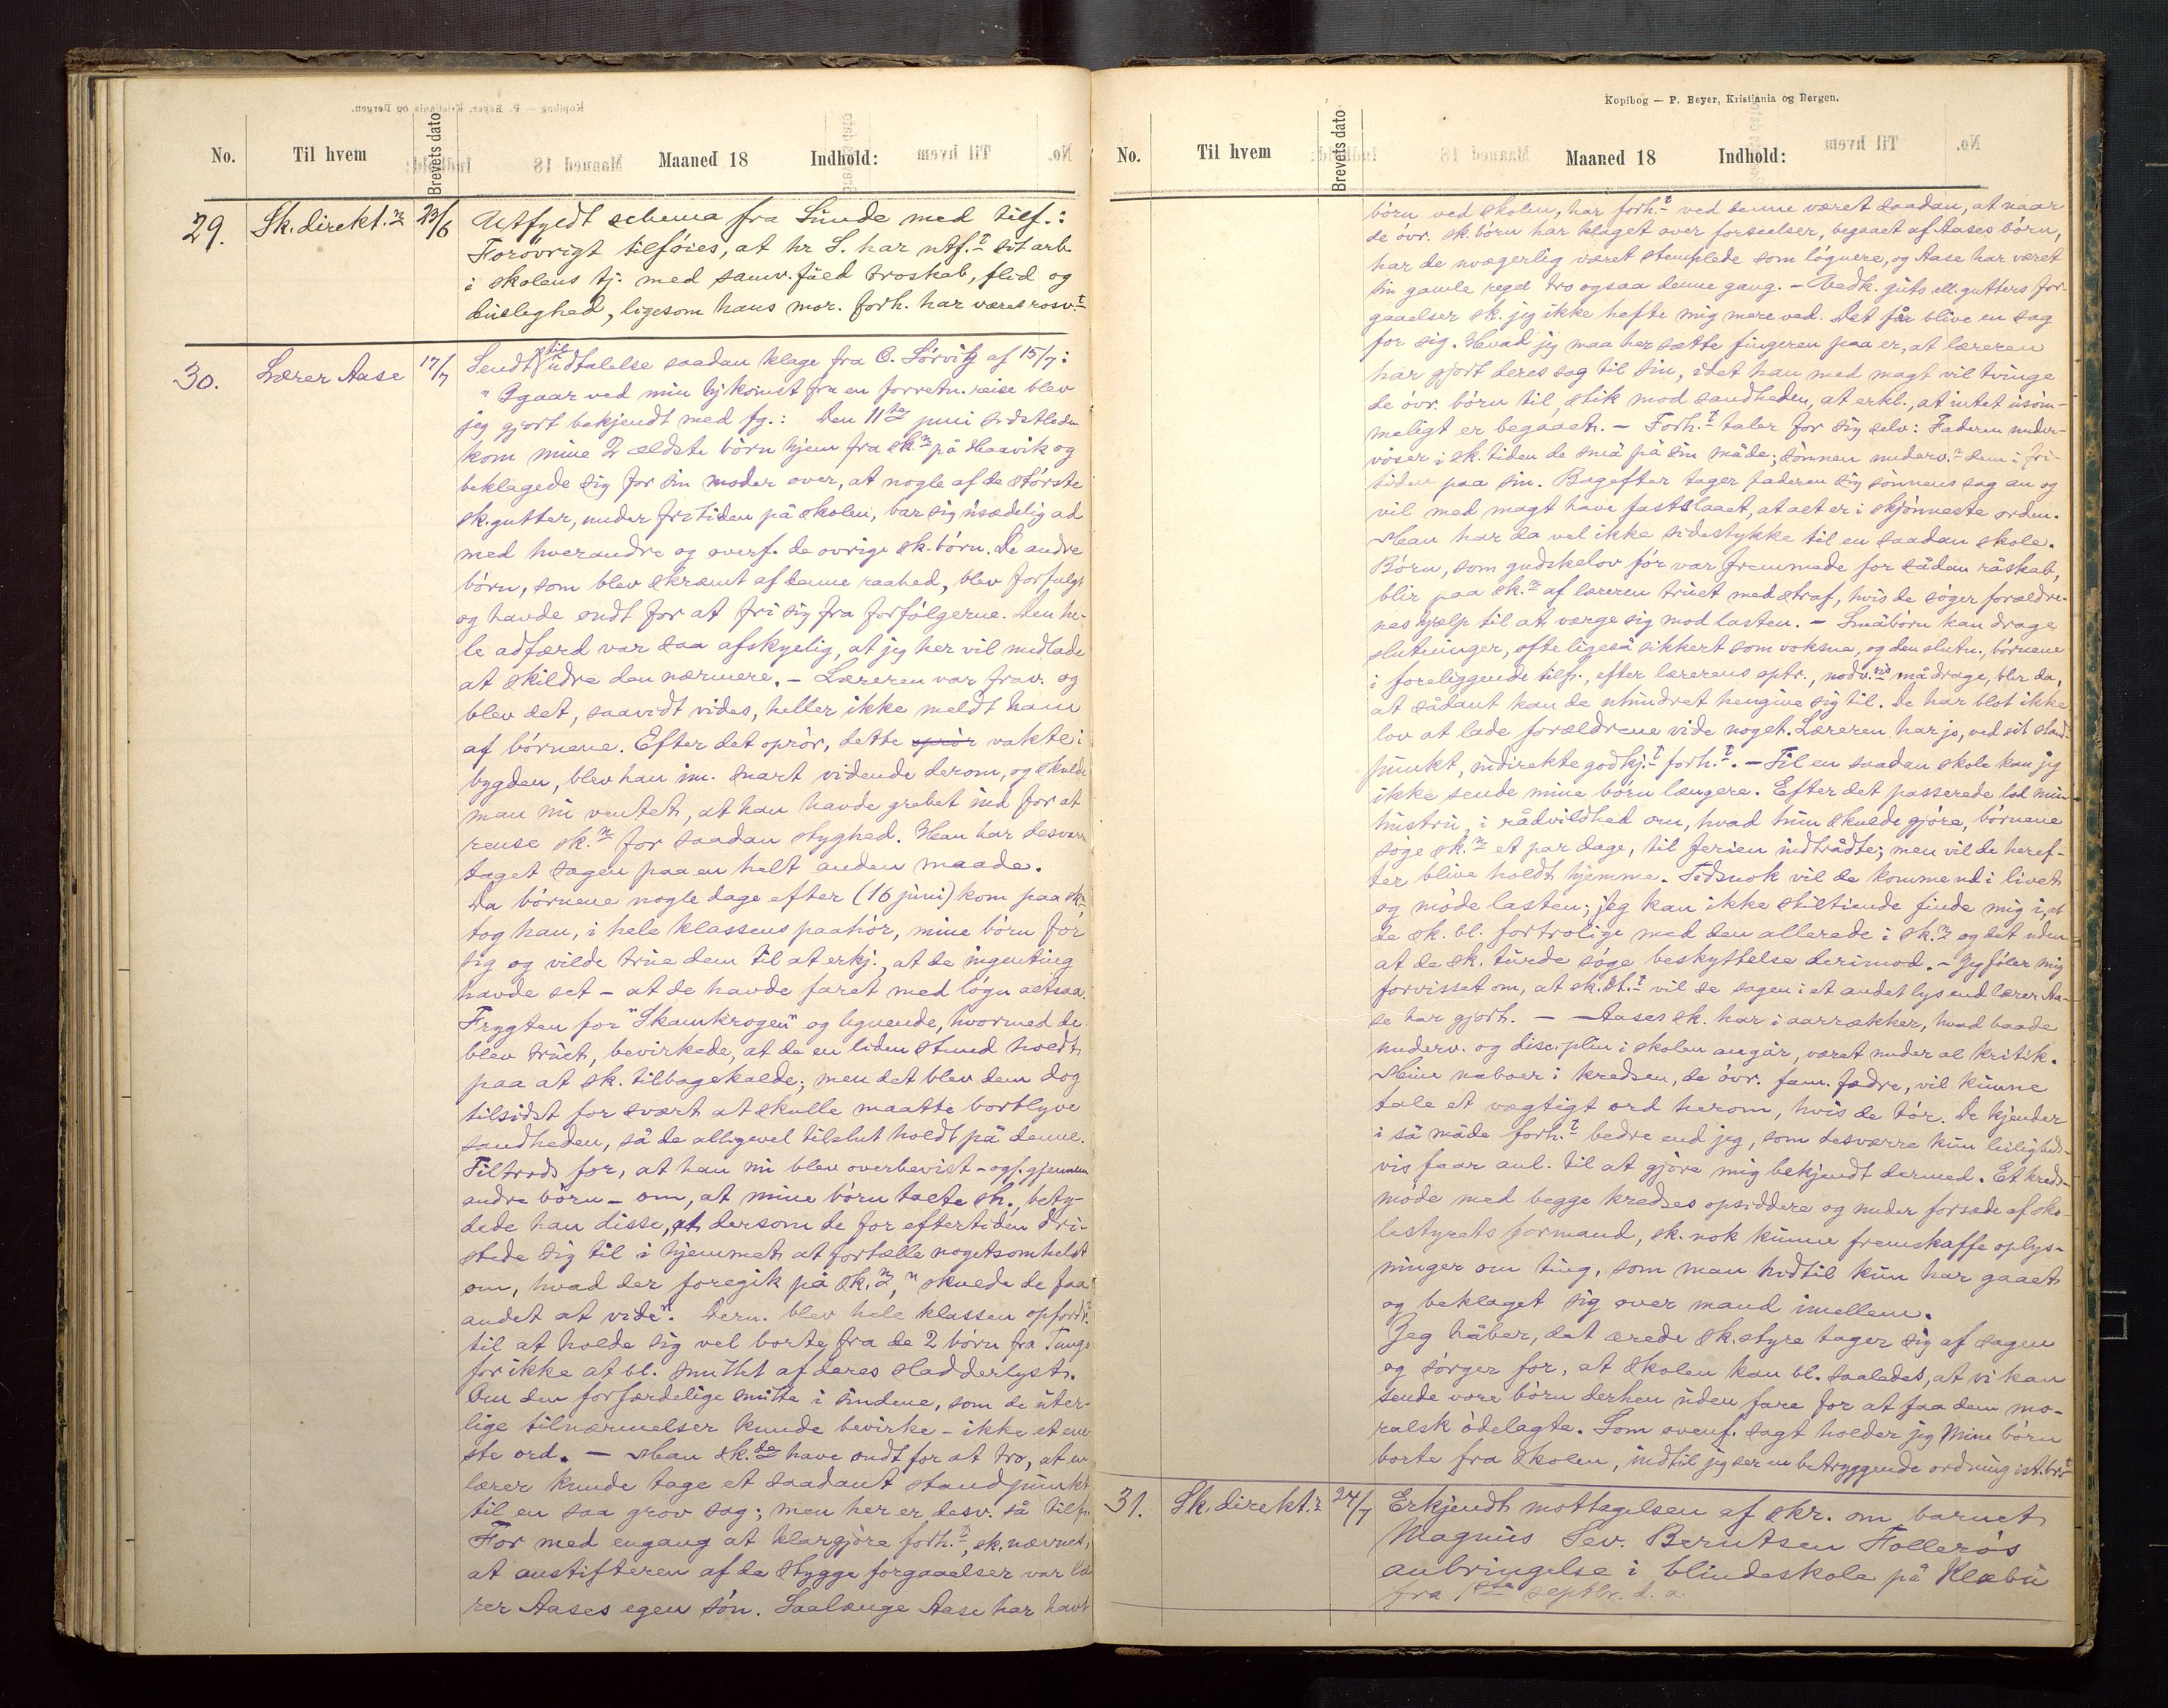 Kopibog — P. Beyer, Kristiania og Bergen.
No.
Til hvem
Brevets dato
Maaned 18
Indhold:
29.
Sk. direkt.n
23/6
Utfyldt schema fra Sunde med tilf.:
Forövrigt tilföies, at hr S. har utf.t sit arb.
i skolens tj. med samv.fuld troskab, flid og
duelighed, ligesom hans mor. forh. har været rosv.t
30.
Lærer Aase
17/7
Sendt til udtalelse saadan klage fra O. Sörvik af 15/7:
"Igaar ved min hj.komst fra en forretn. reise blev
jeg gjort bekjendt med fg.: Den 11te juni sidstleden
kom mine 2 ældste börn hjem fra sk.n på Haavik og
beklagede sig for sin moder over, at nogle af de störste
sk.gutter, under fritiden på skolen, bar sig usædelig ad
med hverandre og overf. de ovrige sk.börn. De andre
börn, som blev skræmt af denne raahed, blev forfulgt
og havde ondt for at fri sig fra forfölgerne. Den he-
le adfærd var saa afskyelig, at jeg her vil undlade
at skildre den nærmere. – Læreren var frav. og
blev det, saavidt vides, heller ikke meldt ham
af börnene. Efter det oprör, dette oprör vakte i
bygden, blev han im. snart vidende derom, og skulde
man nu ventet, at han havde grebet ind for at
rense sk.n for saadan styghed. Han har desværre
taget sagen paa en helt anden maade.
Da börnene nogle dage efter (16 juni) kom paa sk.n,
tog han, i hele klassens paahör, mine börn for
sig og vilde true dem til at erkj., at de ingenting
havde set – at de havde faret med lögn altsaa.
Frygten for "Skamkrogen" og lignende, hvormed de
blev truet, bevirkede, at de en liden stund holdt
paa at sk. tilbagekalde; men det blev dem dog
tilsidst for svært at skulle maatte bortlyve
sandheden, så de alligevel tilslut holdt på denne.
Tiltrods for, at han nu blev overbevist – ogs. gjennem
andre börn – om, at mine börn talte s., bety-
dede han disse, at dersom de for eftertiden dri-
stede sig til i hjemmet at fortælle nogetsomhelst
om, hvad der foregik på sk.n, "skulde de faa
andet at vide". Dern. blev hele klassen opford.t
til at holde sig vel borte fra de 2 börn fra Tunge
for ikke at bl. smittet af deres sladderlyst.
Om den forfærdelige smitte i sindene, som de uter-
lige tilnærmelser kunde bevirke – ikke et ene-
ste ord. – Man sk.de have ondt for at tro, at en
lærer kunde tage et saadant standpunkt
til en saa grov sag; men her er desv. så tilf.
For med engang at klargjöre forh.t, sk. nævnes,
at anstifteren af de stygge forgaaelser var læ-
rer Aases egen sön. Saalænge Aase har havt
Kopibog — P. Beyer, Kristiania og Bergen.
No.
Til hvem
Brevets dato
Maaned 18
Indhold:
börn ved skolen, har forh.t ved denne været saadan, at naar
de övr. sk.börn har klaget over forseelser, begaaet af Aases börn,
har de uvægerlig været stemplede som lögnere, og Aase har været
sin gamle regel tro ogsaa denne gang. – Vedk. guts ell. gutters for-
gaaelser sk. jeg ikke hefte mig mere ved. Det får blive en sag
for sig. Hvad jeg maa her sætte fingeren paa er, at læreren
har gjort deres sag til sin, idet han med magt vil tvinge
de övr. börn til, stik mod sandheden, at erkl., at intet usöm-
meligt er begaaet. – Forh.t taler for sig selv: Faderen under-
viser i sk.tiden de små på sin måde; sönnen underv.r dem i fri-
tiden paa sin. Bagefter tager faderen sig sönnens sag an og
vil med magt have fastslaaet, at alt er i skjönneste orden.
Man har da vel ikke sidestykke til en saadan skole.
Börn, som gudskelov för var fremmede for sådan råskab,
blir paa sk.n af læreren truet med straf, hvis de söger forældre-
nes hjælp til at værge sig mod lasten. – Småbörn kan drage
slutninger, ofte ligeså sikkert som voksne, og den slutn., börnene
i foreliggende tilf., efter lærerens optr., nödv.vis må drage, blir da,
at sådant kan de uhindret hengive sig til. De har blot ikke
lov at lade forældrene vide noget. Læreren har jo, ved sit stand-
punkt, indirekte godkj.t forh.t. – Til en saadan skole kan jeg
ikke sende mine börn længere. Efter det passerede lod min
hustru, i rådvildhed om, hvad hun skulde gjöre, börnene
söge sk.n et par dage, til ferien indtrådte; men vil de heref-
ter blive holdt hjemme. Tidsnok vil de komme ud i livet
og möde lasten; jeg kan ikke stiltiende finde mig i, at
de sk. bl. fortrolige med den allerede i sk.n og det uden
at de sk. turde söge beskyttelse derimod. – Jeg föler mig
forvisset om, at sk.st.t vil se sagen i et andet lys end lærer Aa-
se har gjort. – Aases sk. har i aarrækker, hvad baade
underv. og disciplin i skolen angår, været under al kritik.
Mine naboer i kredsen, de övr. fam.fædre, vil kunne
tale et vægtigt ord herom, hvis de tör. De kjender
i så måde forh.t bedre end jeg, som desværre kun leiligheds-
vis faar anl. til at gjöre mig bekjendt dermed. Et kreds-
möde med begge kredses opsiddere og under forsæde af sko-
lestyrets formand, sk. nok kunne fremskaffe oplys-
ninger om ting, som man hidtil kun har gaaet
og beklaget sig over mand imellem.
Jeg håber, det ærede sk.styre tager sig af sagen
og sörger for, at skolen kan bl. saaledes, at vi kan
sende vore börn derhen uden fare for at faa dem mo-
ralsk ödelagte. Som ovenf. sagt holder jeg mine börn
borte fra skolen, indtil jeg ser en betryggende ordning ist.br.t
31.
Sk. direkt.r
24/7
Erkjendt mottagelsen af skr. om barnet
Magnus Sev. Berntsen Follerös
anbringelse i blindeskole på Klæbu
fra 1ste septbr. d. a.